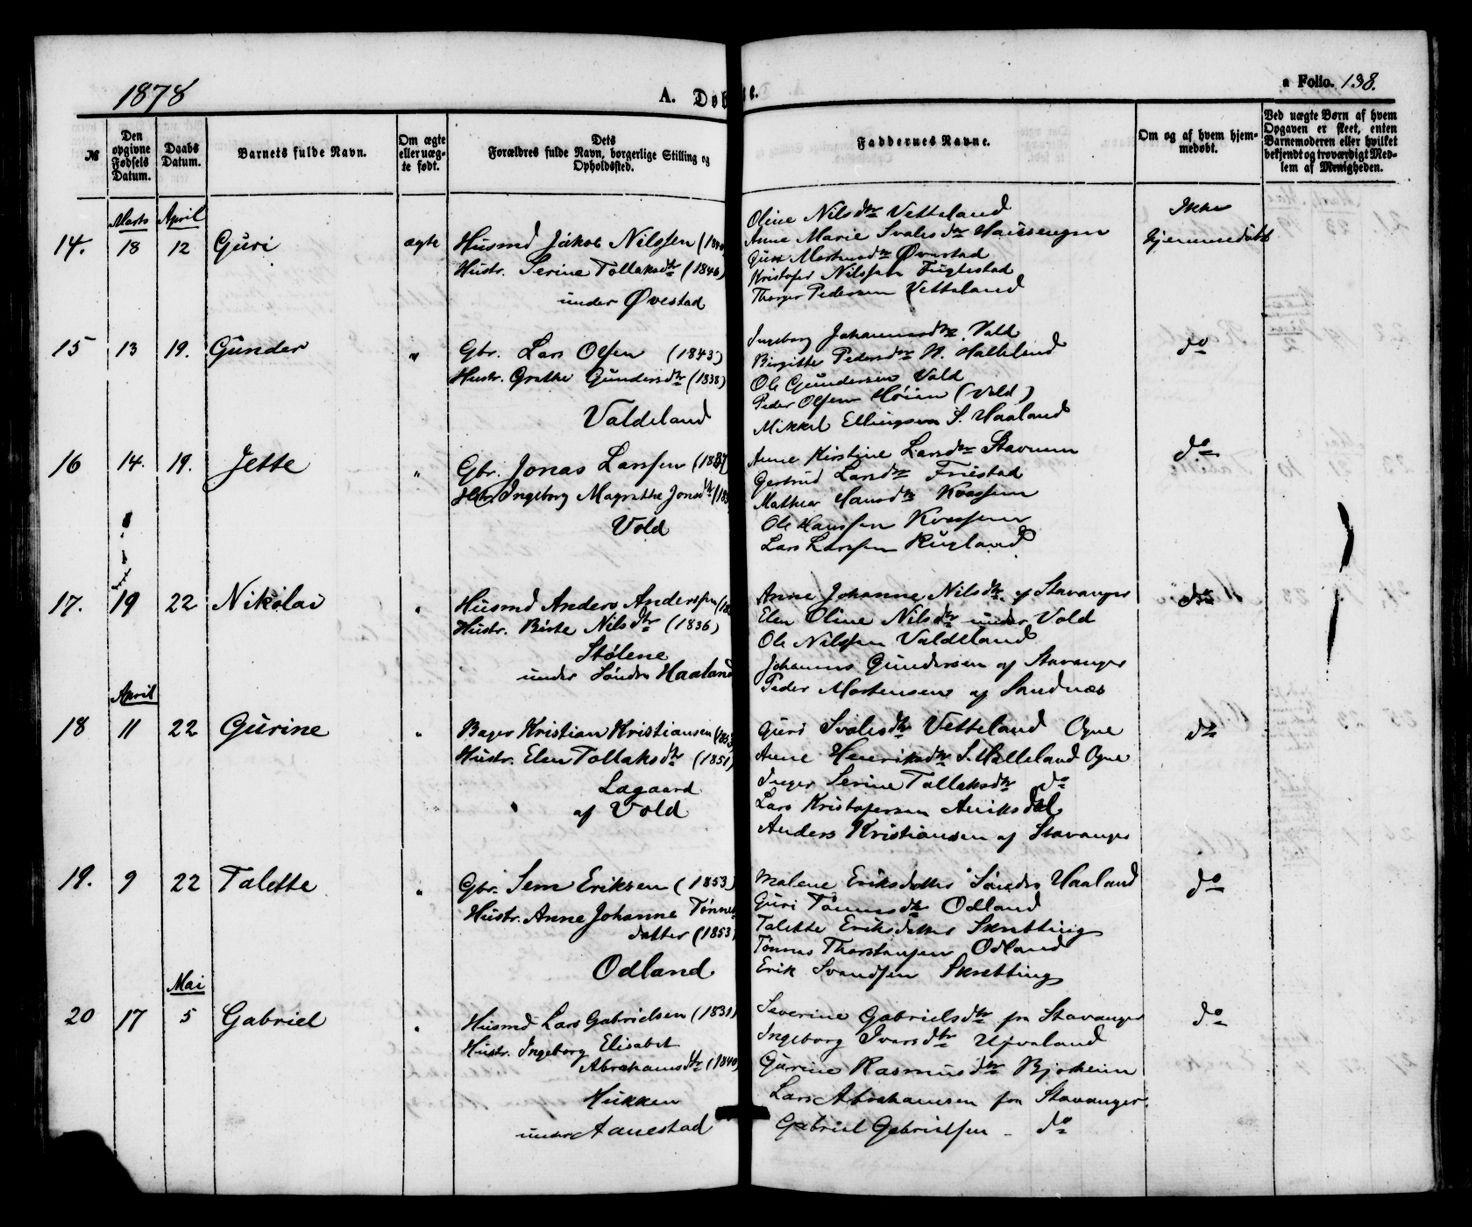 1878
A. Døbte.
a Folio. 138.
№
Den opgivne Fødsels Datum.
Daabs Datum.
Barnets fulde Navn.
Om ægte eller uægte født.
Dets Forældres fulde Navn, borgerlige Stilling og Opholdssted.
Faddernes Navne.
Om og af hvem hjemmedøbt.
Ved uægte Børn af hvem Opgaven er skeet, enten Barnemoderen eller hvilket bekjendt og troværdigt Medlem af Menigheden.
Marts April
14. 18 12 Guri ægte
Husmd Jakob Nilssen
Hustr. Serine Tollaksdtr (1846)
under Øvestad
Oline Nilsdtr Vetteland
Anne Marie Svalesdtr
Mortensdtr Øvestad
Kristofer Nilssen Fuglestad
Pedersen Vetteland
Ikke
hjemmedøbt
15 13 19. Gunder "
Gbr. Lars Olsen (1843)
Hustr. Grethe Gundersdtr (1838)
Valdeland
Ingeborg Johannesdtr Vold
Birgitte Pedersdtr N. Helleland
Ole Gundersen Vold
Peder Olsen Høien (Vold)
Mikkel Ellingsen S. Haaland
do
16 14. 19. Jette "
Gbr. Jonas Larssen
Hstr Ingeborg Magrethe
Vold
Anne Kirstine Larsdtr Stavnem
Gertrud Larsdtr Friestad
Mathea Hansdtr
Ole Hanssen
Lars Larssen Rugland
do
17. 19 22 Nikolai "
Husmd Anders Anderssen
Hustr. Birte Nilsdtr (1836)
Stølene
under Søndre Haaland
Anne Johanne Nilsdtr af Stavanger
Elen Oline Nilsdtr under Vold
Ole Nilssen Valdeland
Johannes Gundersen af Stavanger
Peder Mortensen af Sandnæs
do
April
18 11 22 Gurine "
Bager Kristian Kristiansen
Hustr. Elen Tollaksdtr (1851)
Lagaard
af Vold
Guri Svalesdtr Vetteland Ogne
Anne Henriksdtr S. Helleland Ogne
Inger Serine Tollaksdtr do
Lars Kristofersen Aniksdal
Anders Kristiansen af Stavanger
do
19. 9 22 Talette "
Gbr. Sem Eriksen (1853)
Hustr. Anne Johanne Tønnes
datter (1853)
Odland
Malene Eriksdatter Søndre Haaland
Guri Tønnesdtr Odland
Talette Eriksdatter Skretting
Tønnes Thorstensen Odland
Erik Svendsen Skretting
do
Mai
20 17 5 Gabriel "
Husmd Lars Gabrielsen (1831)
Hustr. Ingeborg Elisabet
Abrahamsdtr (1840)
Hukken
under Aanestad
Severine Gabrielsdtr fra Stavanger
Ingeborg Ivarsdtr
Gurine Rasmusdtr Bjoheim
Lars Abrahamsen fra Stavanger
Gabriel Gabrielsen - do
do